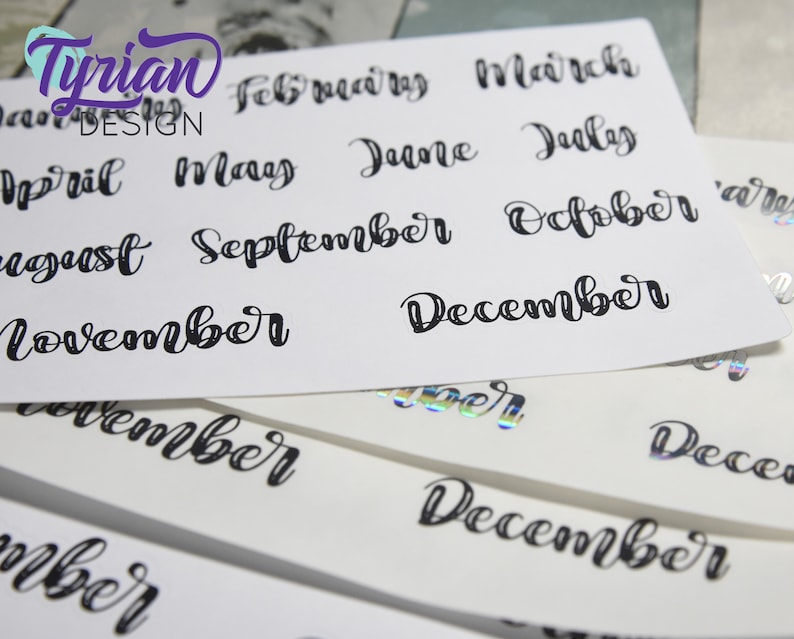 Tyrian
DESIGN
January February March
April May June July
August September October
November December
mber
December
November
December
mber